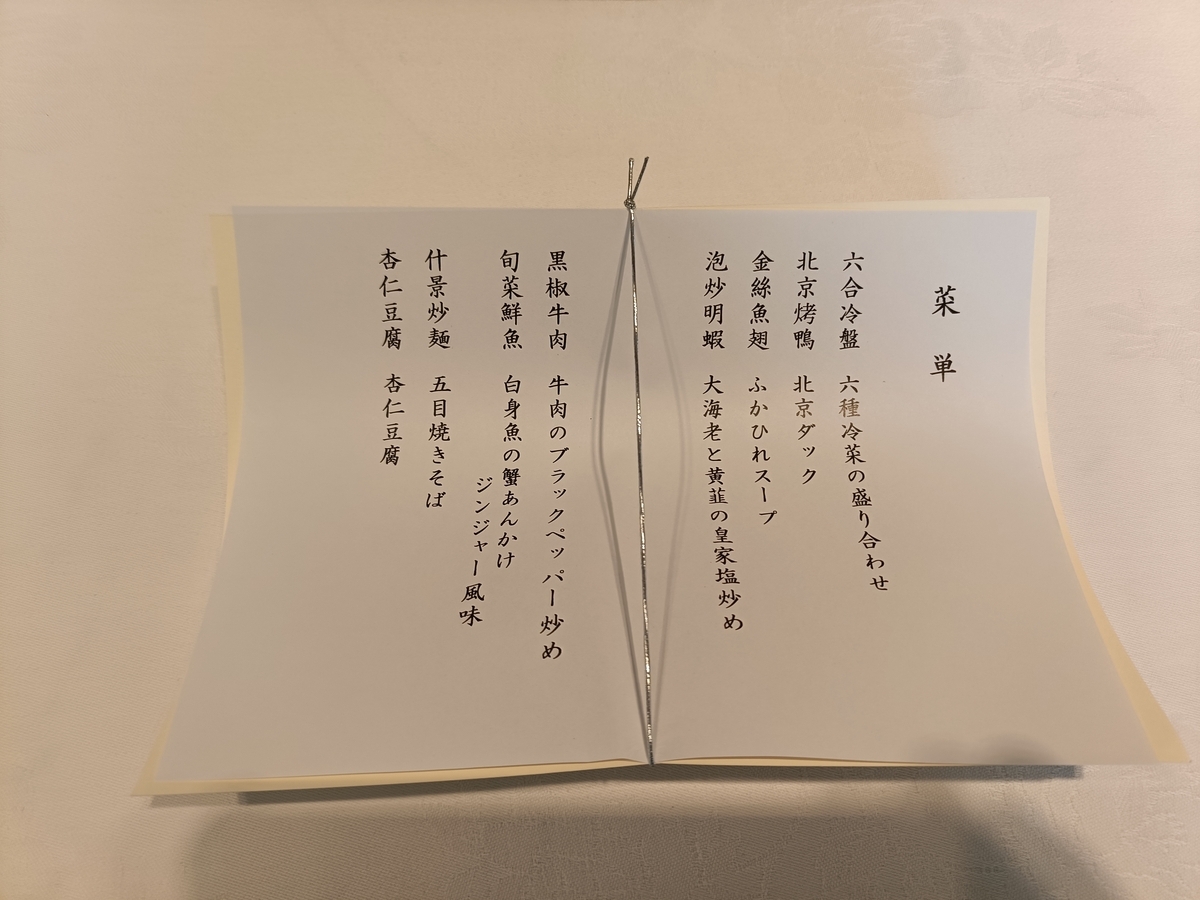 菜単
六合冷盤 六種冷菜の盛り合わせ
北京烤鴨 北京ダック
金絲魚翅 ふかひれスープ
泡炒明蝦 大海老と黄韮の皇家塩炒め
黒椒牛肉 牛肉のブラックペッパー炒め
旬菜鮮魚 白身魚の蟹あんかけ
ジンジャー風味
什景炒麺 五目焼きそば
杏仁豆腐 杏仁豆腐